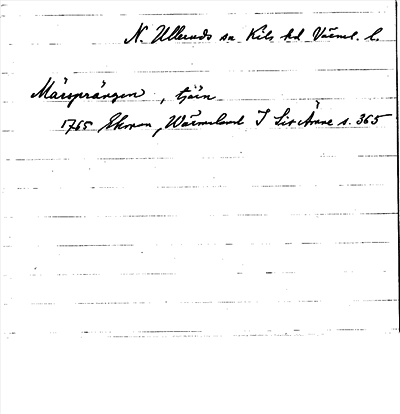 N. Ulleruds sn Kils hd Värml. l.
Märsprången, tjärn
1765 Ekman, Wärmeland I s. 365